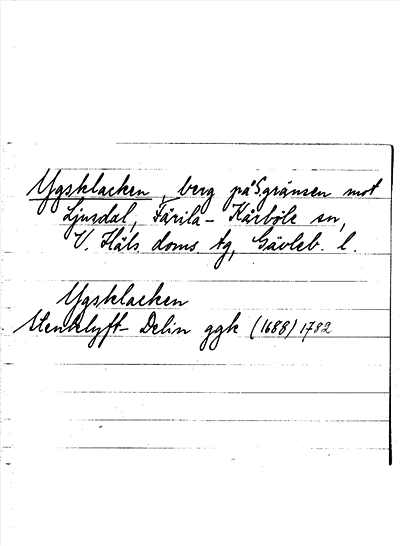 Ygsklacken, berg på S gränsen mot
Ljusdal, Färila-Kårböle sn,
V. Häls doms. tg, Gävleb. l.
Ygsklacken
Stenklyft Delin ggk (1688) 1782